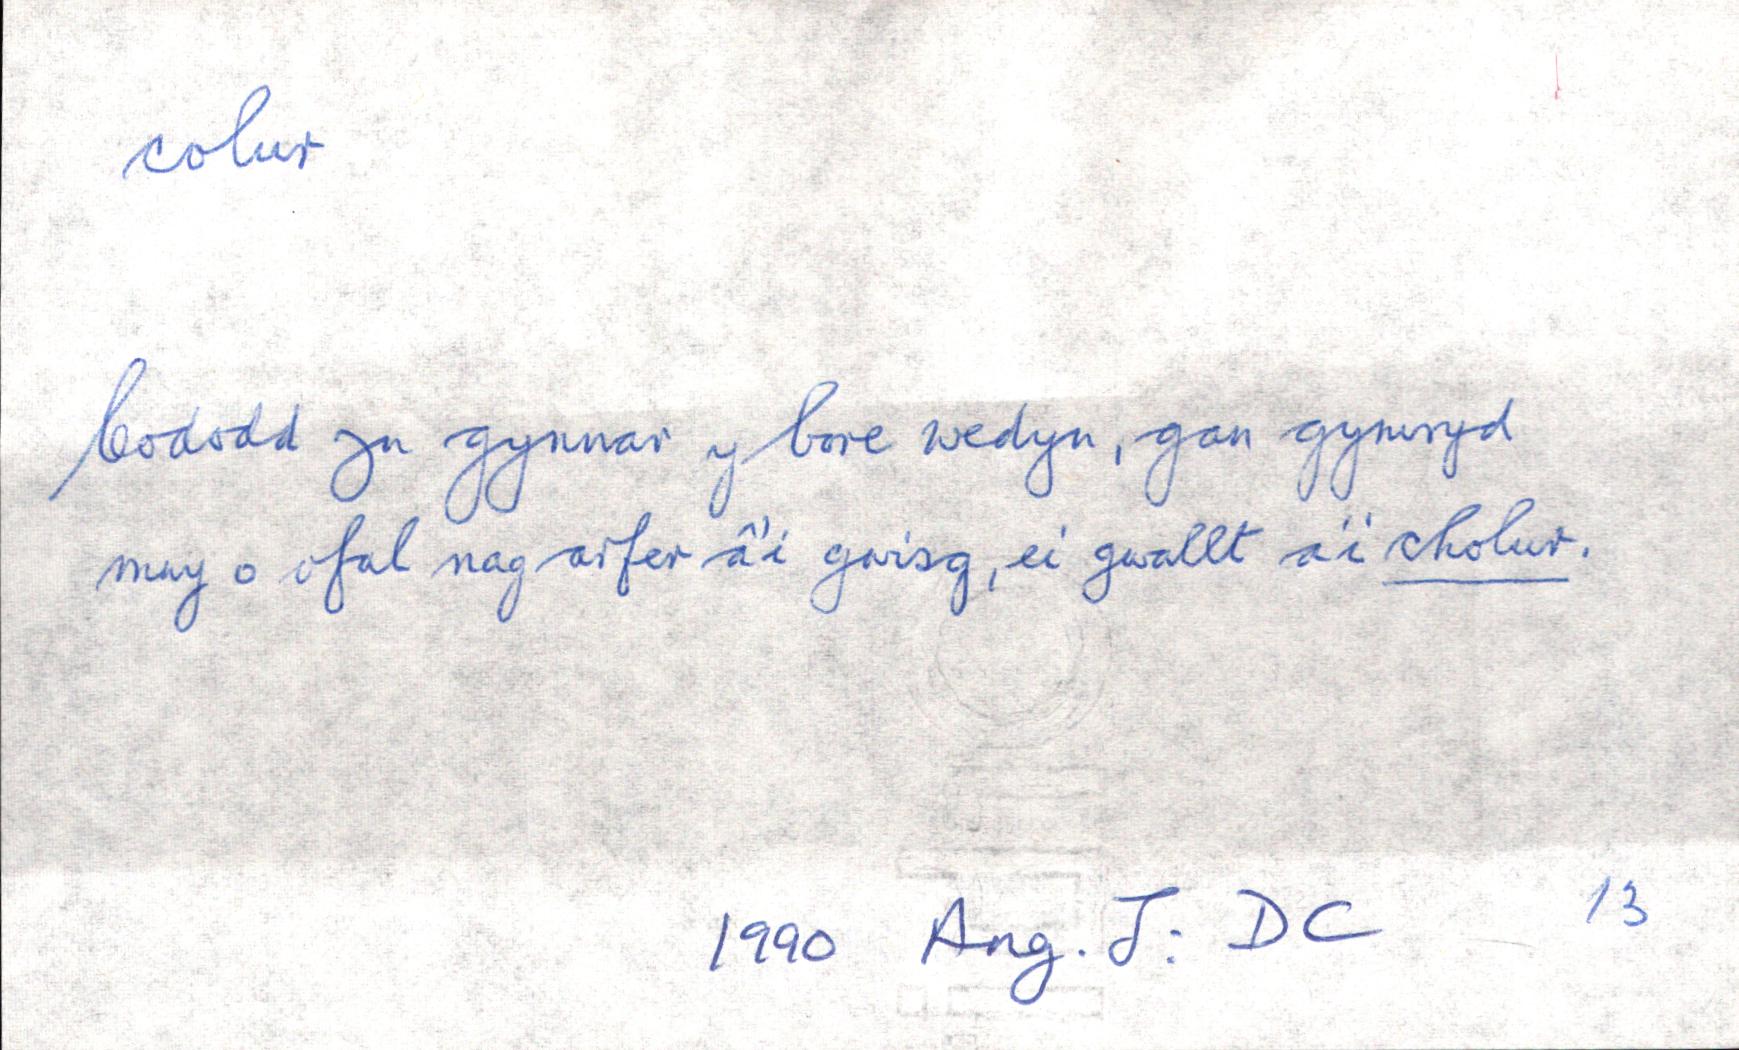 colur
Cododd yn gynnar y bore wedyn, gan gymryd
mwy o ofal nag arfer â'i gwisg, ei gwallt a'i cholur.
1990 Ang. J: DC 13